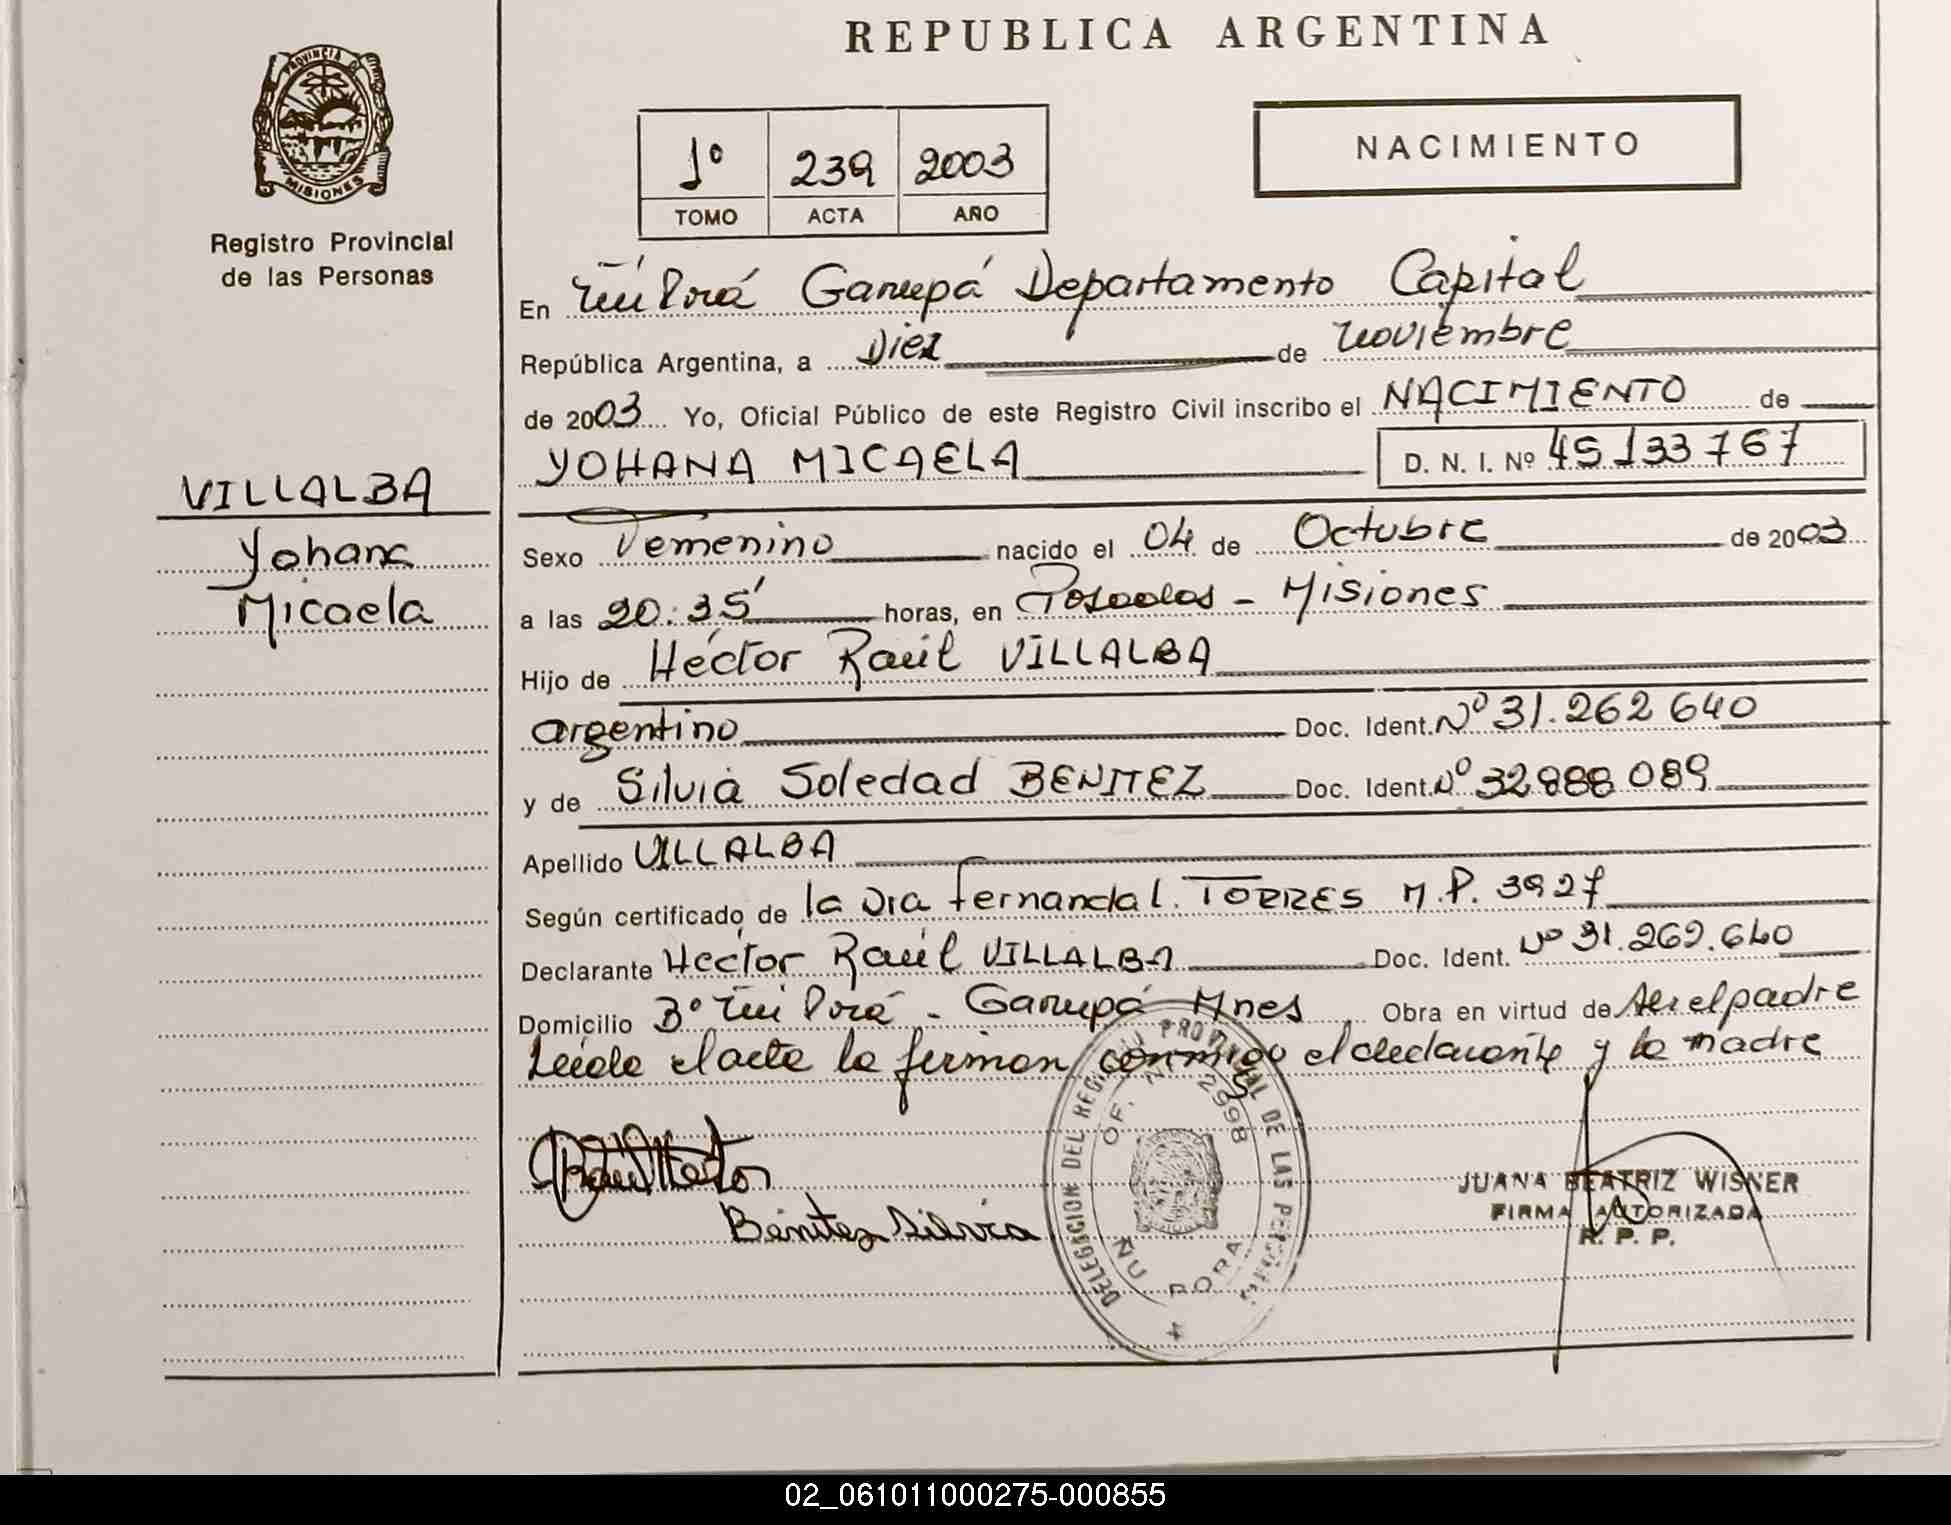 REPUBLICA ARGENTINA
PROVINCIA DE
MISIONES
Registro Provincial
de las Personas
1º 239 2003
TOMO ACTA AÑO
NACIMIENTO
En Ñu Porá Garupá Departamento Capital
República Argentina, a Diez de noviembre
de 2003 Yo, Oficial Público de este Registro Civil inscribo el NACIMIENTO de
YOHANA MICAELA D. N. I. Nº 45133767
VILLALBA
Yohana
Micaela
Sexo Femenino nacido el 04 de Octubre de 2003
a las 20:35' horas, en Posadas - Misiones
Hijo de Héctor Raúl VILLALBA
argentino Doc. Ident. Nº 31.262640
y de Silvia Soledad BENITEZ Doc. Ident. Nº 32888089
Apellido VILLALBA
Según certificado de la Dra Fernanda L. TORRES M.P. 3927
Declarante Hector Raúl VILLALBA Doc. Ident. Nº 31.262.640
Domicilio Bº Ñu Porá - Garupá Mnes Obra en virtud de ser el padre
Leída el acta la firman conmigo el declarante y la madre
DELEGACION DEL REGISTRO PROVINCIAL DE LAS PERSONAS
OF. 2998
ÑU PORA
Raúl Hector
Benitez Silvia
JUANA BEATRIZ WISNER
FIRMA AUTORIZADA
R. P. P.
02_061011000275-000855